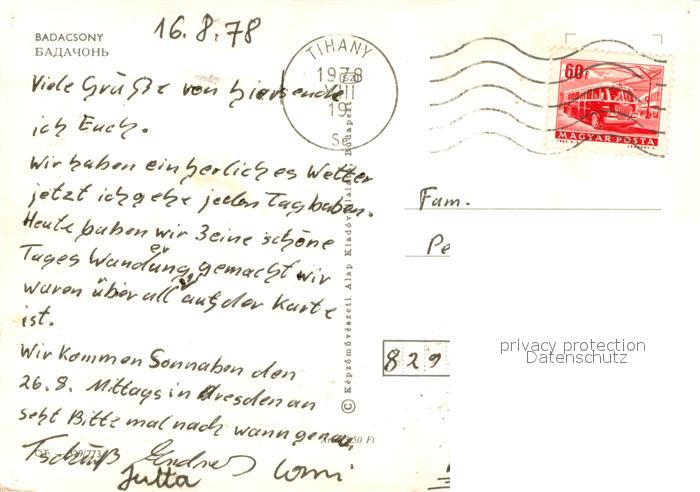 BADACSONY
БАДАЧОНЬ
16.8.78
Viele Grüße von hiersende
ich Euch.
Wir haben ein herlich es Wetter
jetzt ich gehe jeden Tag baben.
Heute haben wir 3 eine schöne
Tages Wanderung gemacht wir
waren über all auf der Karte
ist.
Wir kommen Sonnaben den
26.8. Mttags in Dresden an
seht Bitte mal nach wann genau.
Tschüß
Jutta
Conni
TIHANY
1978
19
60f
MAGYAR POSTA
© Képzőművészeti Alap Kiadóvállalata, Budapest
Fam.
Pe
829
50 Ft
privacy protection
Datenschutz